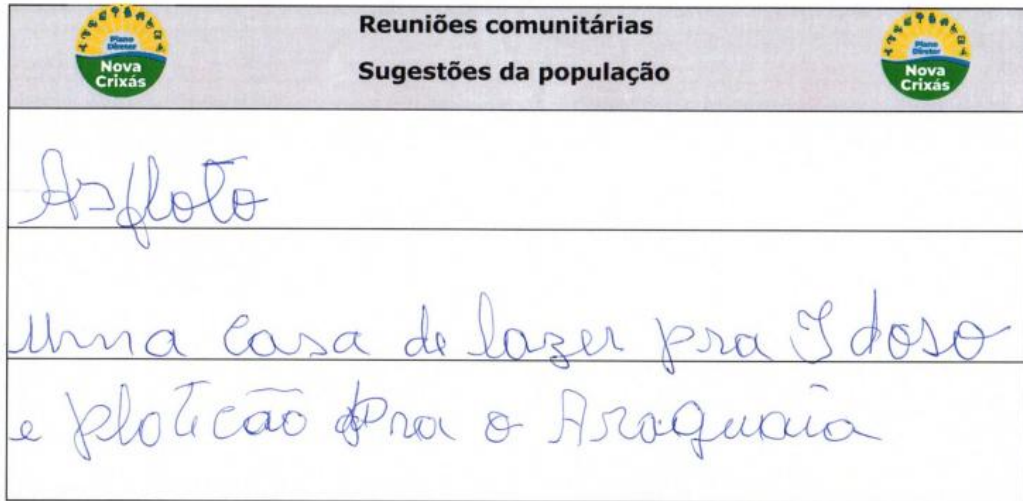 Plano
Diretor
Nova
Crixás
Reuniões comunitárias
Sugestões da população
Plano
Diretor
Nova
Crixás
Asfloto
Uma casa de lazer pra Idoso
e ploticão pra o Araguaia